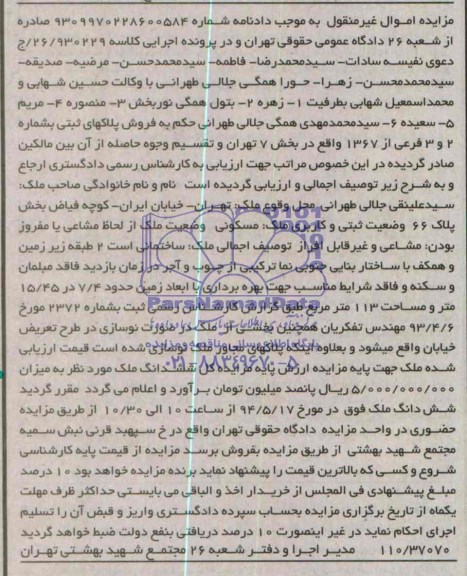 مزایده اموال غیرمنقول به موجب دادنامه شماره ۹۳۰۹۹۷۰۲۲۸۶۰۰۵۸۴ صادره
از شعبه ۲۶ دادگاه عمومی حقوقی تهران و در پرونده اجرایی کلاسه ۲۶/۹۳۰۲۲۹/ج
دعوی نفیسه سادات- سیدمحمدرضا- فاطمه- سیدمحمدحسن- مرضیه- صدیقه-
سیدمحمدمحسن- زهرا- حورا همگی جلالی طهرانی با وکالت حسین شهابی و
محمداسمعیل شهابی بطرفیت ۱- زهره ۲- بتول همگی نوربخش ۳- منصوره ۴- مریم
۵- سعیده ۶- سیدمحمدمهدی همگی جلالی طهرانی حکم به فروش پلاکهای ثبتی بشماره
۲ و ۳ فرعی از ۱۳۶۷ واقع در بخش ۷ تهران و تقسیم وجوه حاصله از آن بین مالکین
صادر گردیده در این خصوص مراتب جهت ارزیابی به کارشناس رسمی دادگستری ارجاع
و به شرح زیر توصیف اجمالی و ارزیابی گردیده است نام و نام خانوادگی صاحب ملک:
سیدعلینقی جلالی طهرانی محل وقوع ملک: تهران- خیابان ایران- کوچه فیاض بخش
پلاک ۶۶ وضعیت ثبتی و کاربری ملک: مسکونی وضعیت ملک از لحاظ مشاعی یا مفروز
بودن: مشاعی و غیرقابل افراز توصیف اجمالی ملک: ساختمانی است ۲ طبقه زیر زمین
و همکف با ساختار بنایی جنوبی نما ترکیبی از چوب و آجر در زمان بازدید فاقد مبلمان
و سکنه و فاقد شرایط مناسب جهت بهره برداری با ابعاد زمین حدود ۷/۴ در ۱۵/۴۵
متر و مساحت ۱۱۳ متر مربع طبق گزارش کارشناس رسمی ثبت بشماره ۲۳۷۲ مورخ
۹۳/۴/۶ مهندس تفکریان همچنین بخشی از ملک در صورت نوسازی در طرح تعریض
خیابان واقع میشود و بعلاوه اینکه پلاکهای مجاور ملک نوسازی شده است قیمت ارزیابی
شده ملک جهت پایه مزایده ارزش پایه مزایده کل ششدانگ ملک مورد نظر به میزان
۵/۰۰۰/۰۰۰/۰۰۰ ریال پانصد میلیون تومان برآورد و اعلام می گردد مقرر گردید
شش دانگ ملک فوق در مورخ ۹۴/۵/۱۷ از ساعت ۱۰ الی ۱۰/۳۰ از طریق مزایده
حضوری در واحد مزایده دادگاه حقوقی تهران واقع در خ سپهبد قرنی نبش سمیه
مجتمع شهید بهشتی از طریق مزایده بفروش برسد مزایده از قیمت پایه کارشناسی
شروع و کسی که بالاترین قیمت را پیشنهاد نماید برنده مزایده خواهد بود ۱۰ درصد
مبلغ پیشنهادی فی المجلس از خریدار اخذ و الباقی می بایستی حداکثر ظرف مهلت
یکماه از تاریخ برگزاری مزایده بحساب سپرده دادگستری واریز و قبض آن را تسلیم
اجرای احکام نماید در غیر اینصورت ۱۰ درصد دریافتی بنفع دولت ضبط خواهد گردید
۱۱۰/۳۷۰۷۰ مدیر اجرا و دفتر شعبه ۲۶ مجتمع شهید بهشتی تهران
ParsNamadData
۰۲۱-۸۸۳۴۹۶۷۰-۵